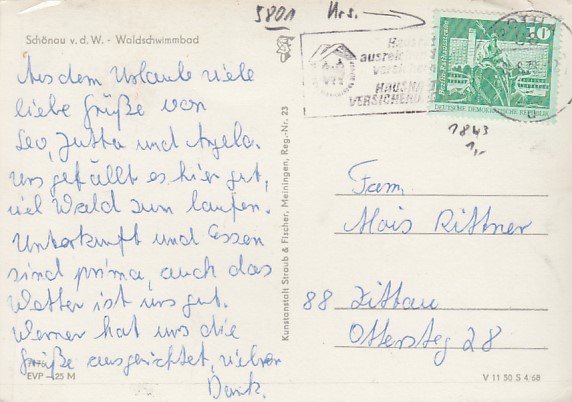 5801 Hrs.
Schönau v. d. W. - Waldschwimmbad
Aus dem Urlaube viele
liebe Grüße von
Leo, Jutta und Angela.
Uns gefällt es hier gut,
viel Wald zum laufen.
Unterkunft und Essen
sind prima, auch das
Wetter ist uns gut.
Werner hat uns die
Grüße ausgerichtet, vielen
Dank.
EVP -25 M
Kunstanstalt Straub & Fischer, Meiningen, Reg.-Nr. 23
HAUSHA
VERSICHERU
Berlin, Rathausstraße
10
DEUTSCHE DEMOKRATISCHE REPUBLIK
1843
1,-
Fam.
Alois Rittner
88 Zittau
Ottersteg 28
V 11 50 S 4/68